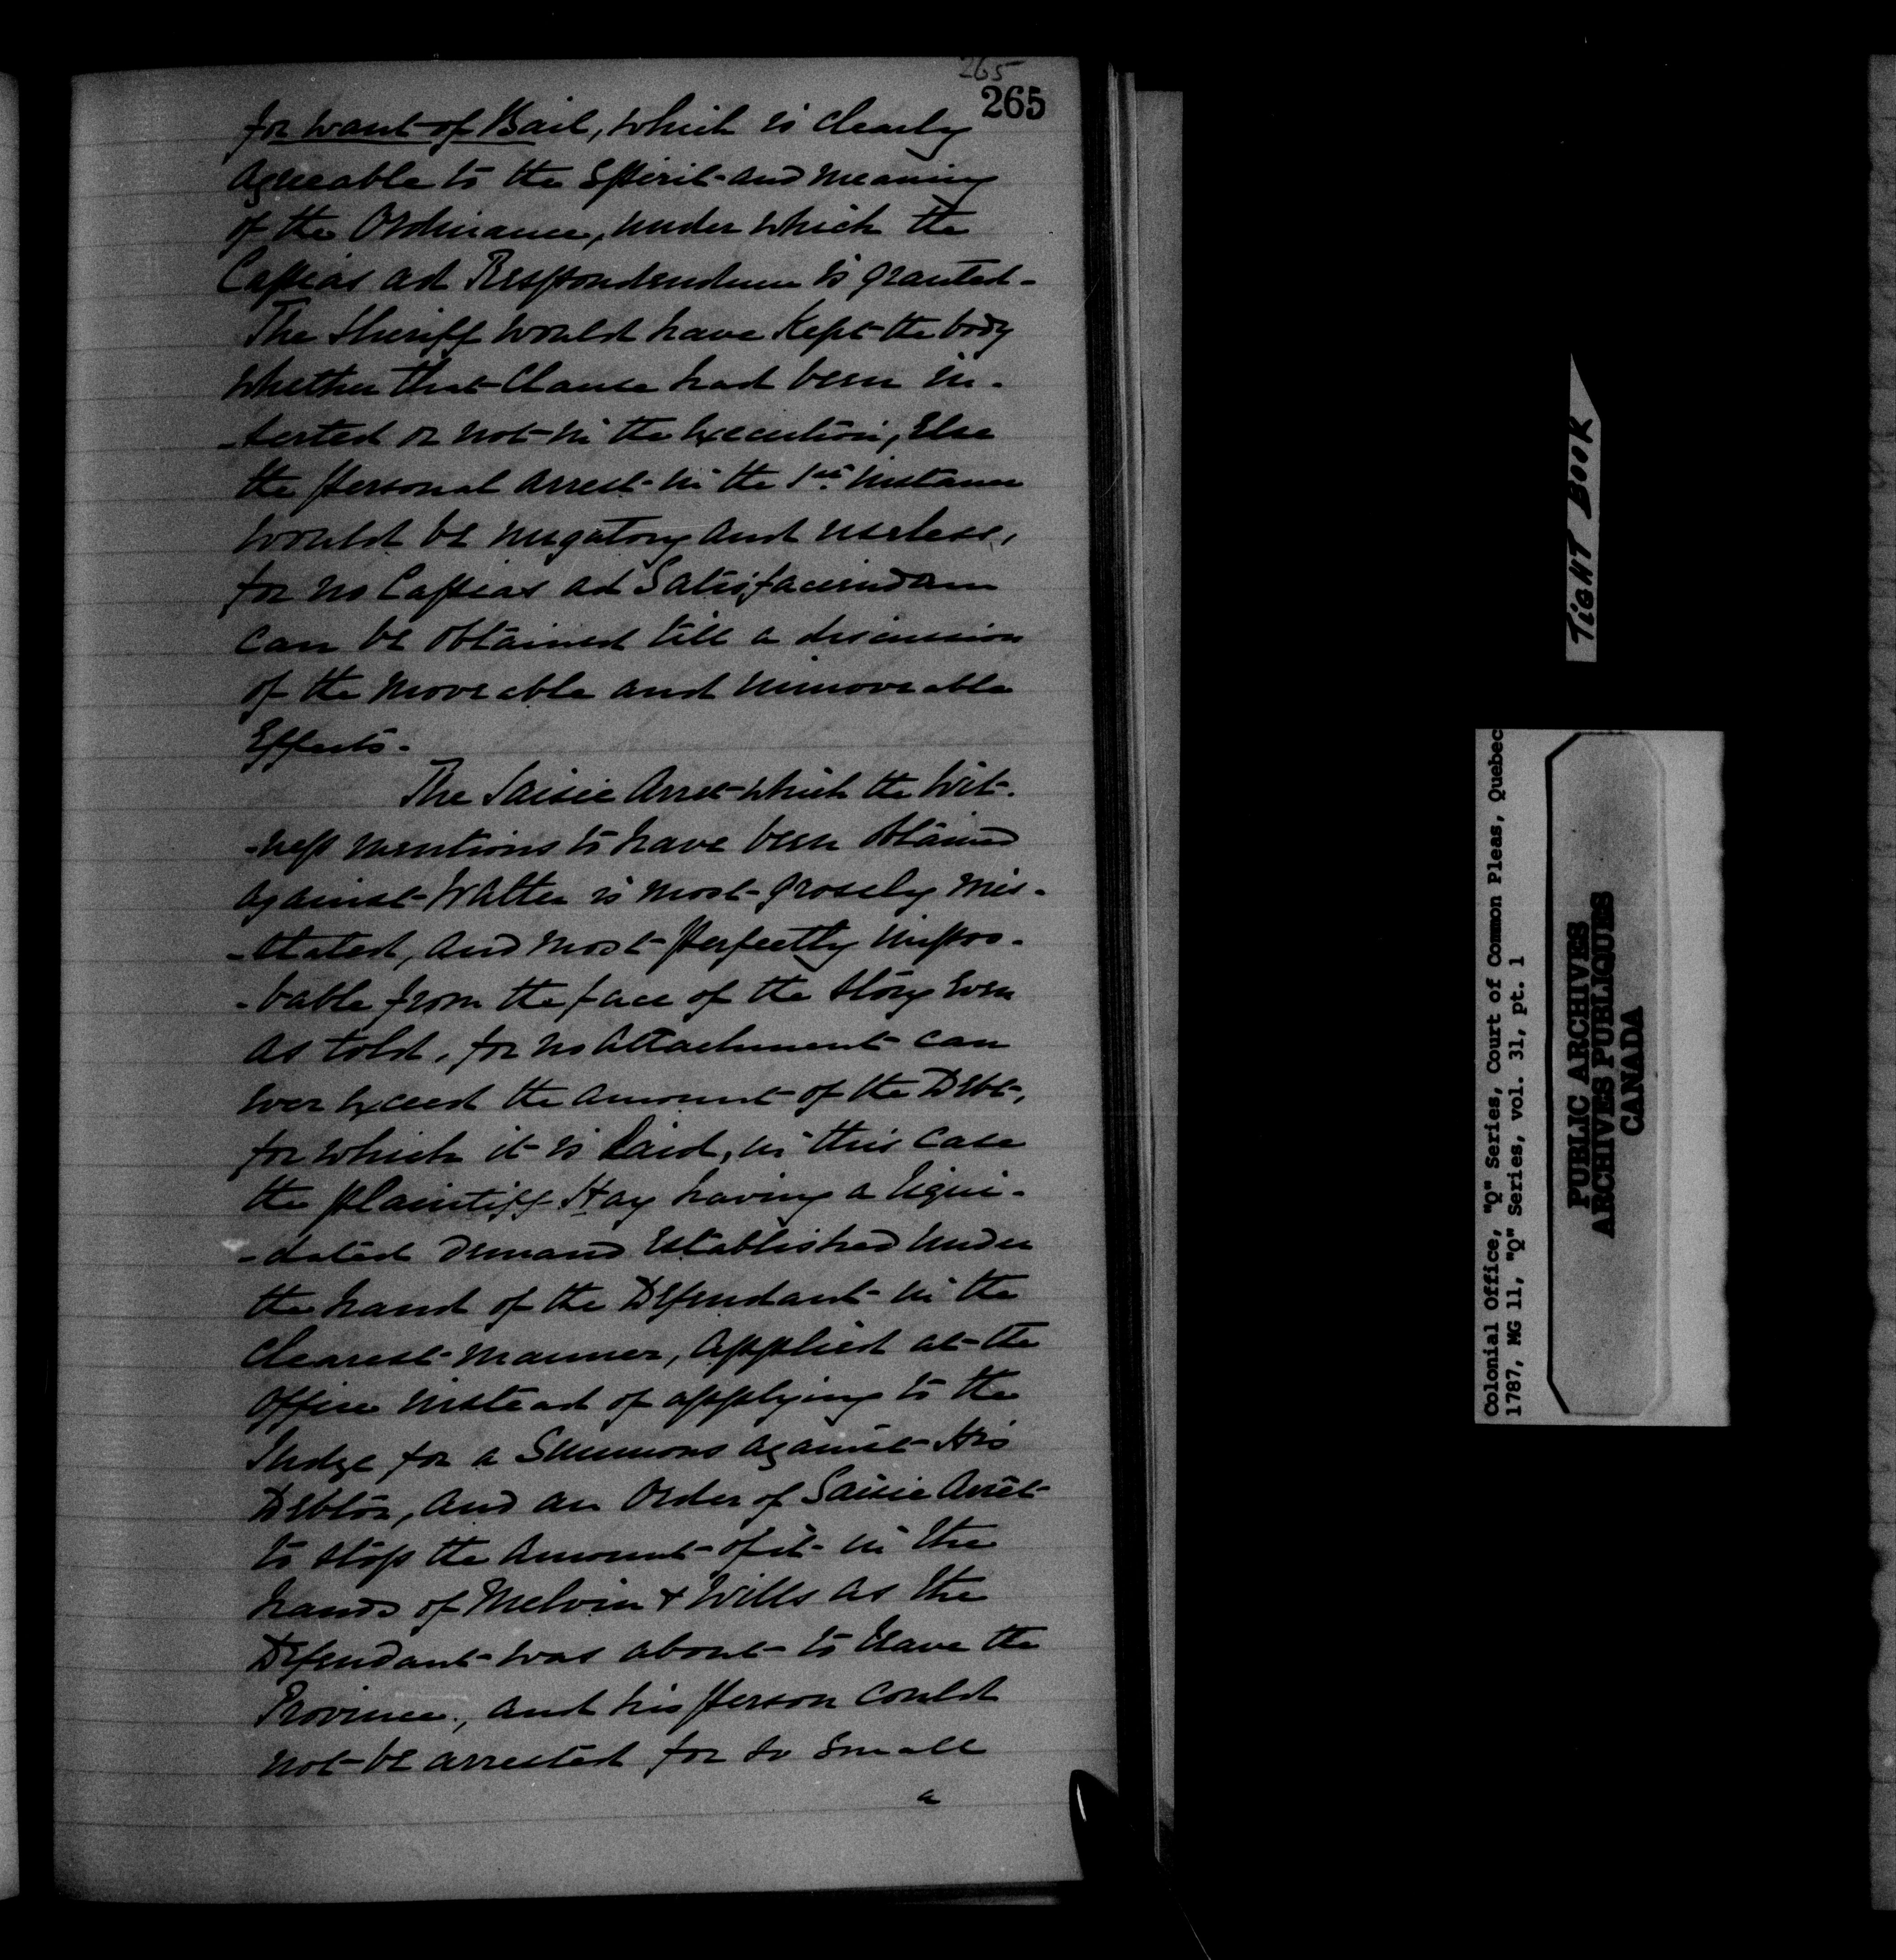 265
265
for want of Bail, which is clearly
agreeable to the Spirit and meaning
of the Ordinance, under which the
Capias ad Respondendum is granted -
The Sheriff would have Kept the body
whether that Clause had been in-
-serted or not in the Execution, Else
the personal arrest in the 1st instance
would be nugatory and useless,
for no Capias ad Satisfaciendam
can be obtained till a discussion
of the moveable and immoveable
Effects -
The Saisie Arret which the Wit-
-ness mentions to have been obtained
against Watter is most grossly mis-
-stated, and most perfectly impro-
-bable from the face of the story Even
as told, for no attachment can
Ever Exceed the amount of the Debt,
for which it is Laid, in this Case
the plaintiff Hay having a liqui-
-dated demand Established under
the hand of the Defendant in the
Clearest manner, applied at the
Office instead of applying to the
Judge for a Summons against His
Debtor, and an Order of Saisie Arrêt
to stop the amount of it in the
hands of Melvin & Wills as the
Defendant was about to leave the
Province, and his person Could
not be arrested for so small
a
TIGHT BOOK
Colonial Office, "Q" Series, Court of Common Pleas, Quebec
1787, MG 11, "Q" Series, vol. 31, pt. 1
PUBLIC ARCHIVES
ARCHIVES PUBLIQUES
CANADA